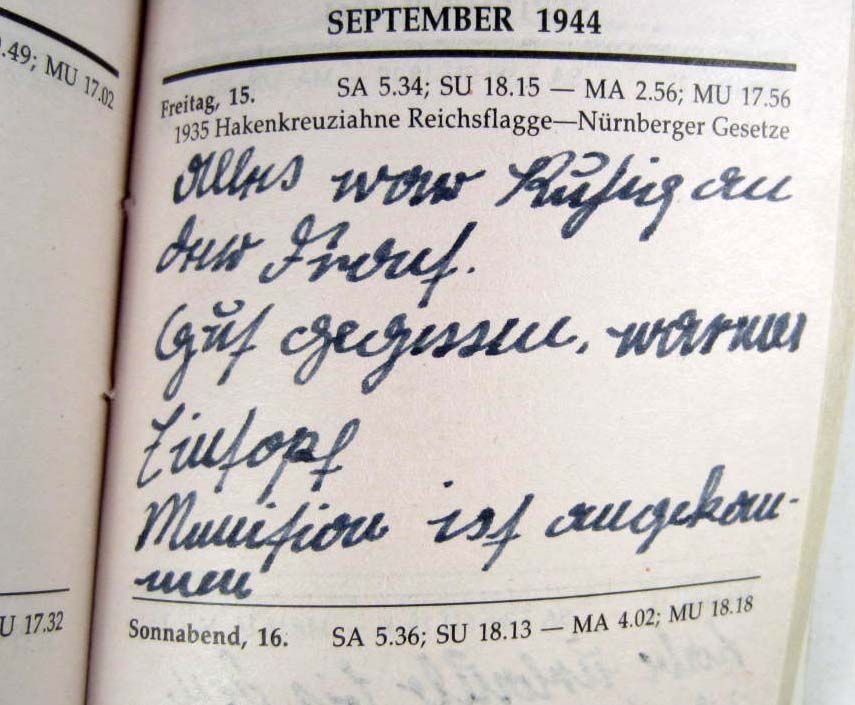 SEPTEMBER 1944
.49; MU 17.02
Freitag, 15. SA 5.34; SU 18.15 — MA 2.56; MU 17.56
1935 Hakenkreuziahne Reichsflagge—Nürnberger Gesetze
Alles war Ruhig an
der Front.
Gut gegessen, warmer
Eintopf
Munition ist angekom-
men
U 17.32
Sonnabend, 16. SA 5.36; SU 18.13 — MA 4.02; MU 18.18